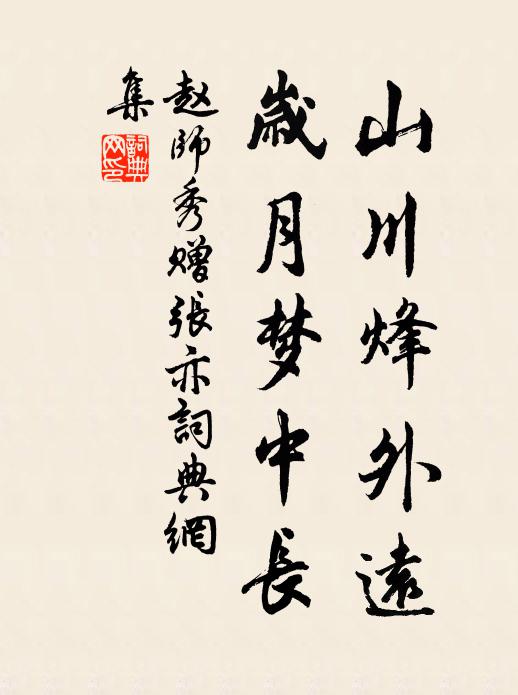 山川烽外遠
歲月梦中長
赵師秀赠張亦詞典網
集
詞典
网印